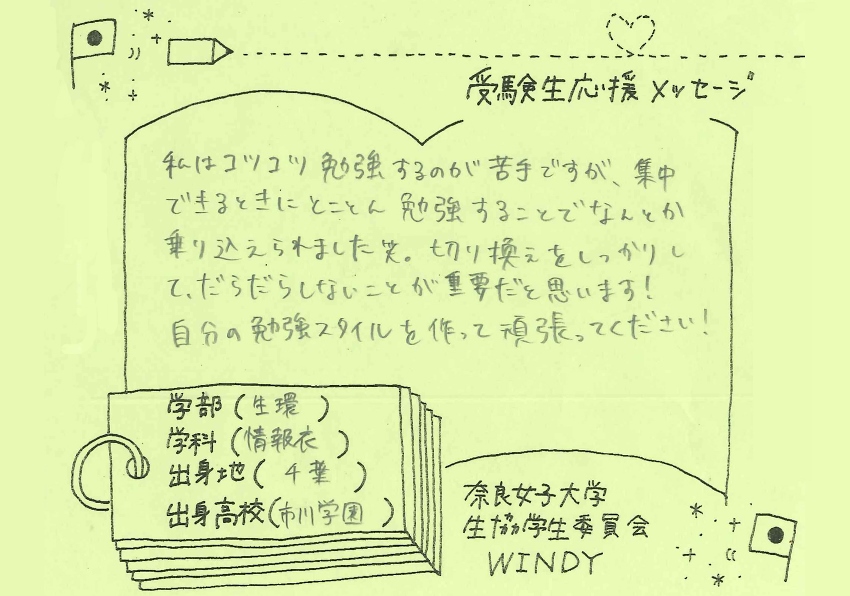 受験生応援メッセージ
私はコツコツ勉強するのが苦手ですが、集中
できるときにとことん勉強することでなんとか
乗り込えられました笑。切り換えをしっかりし
て、だらだらしないことが重要だと思います!
自分の勉強スタイルを作って頑張ってください!
学部(生環)
学科(情報衣)
出身地(千葉)
出身高校(市川学園)
奈良女子大学
生協学生委員会
WINDY